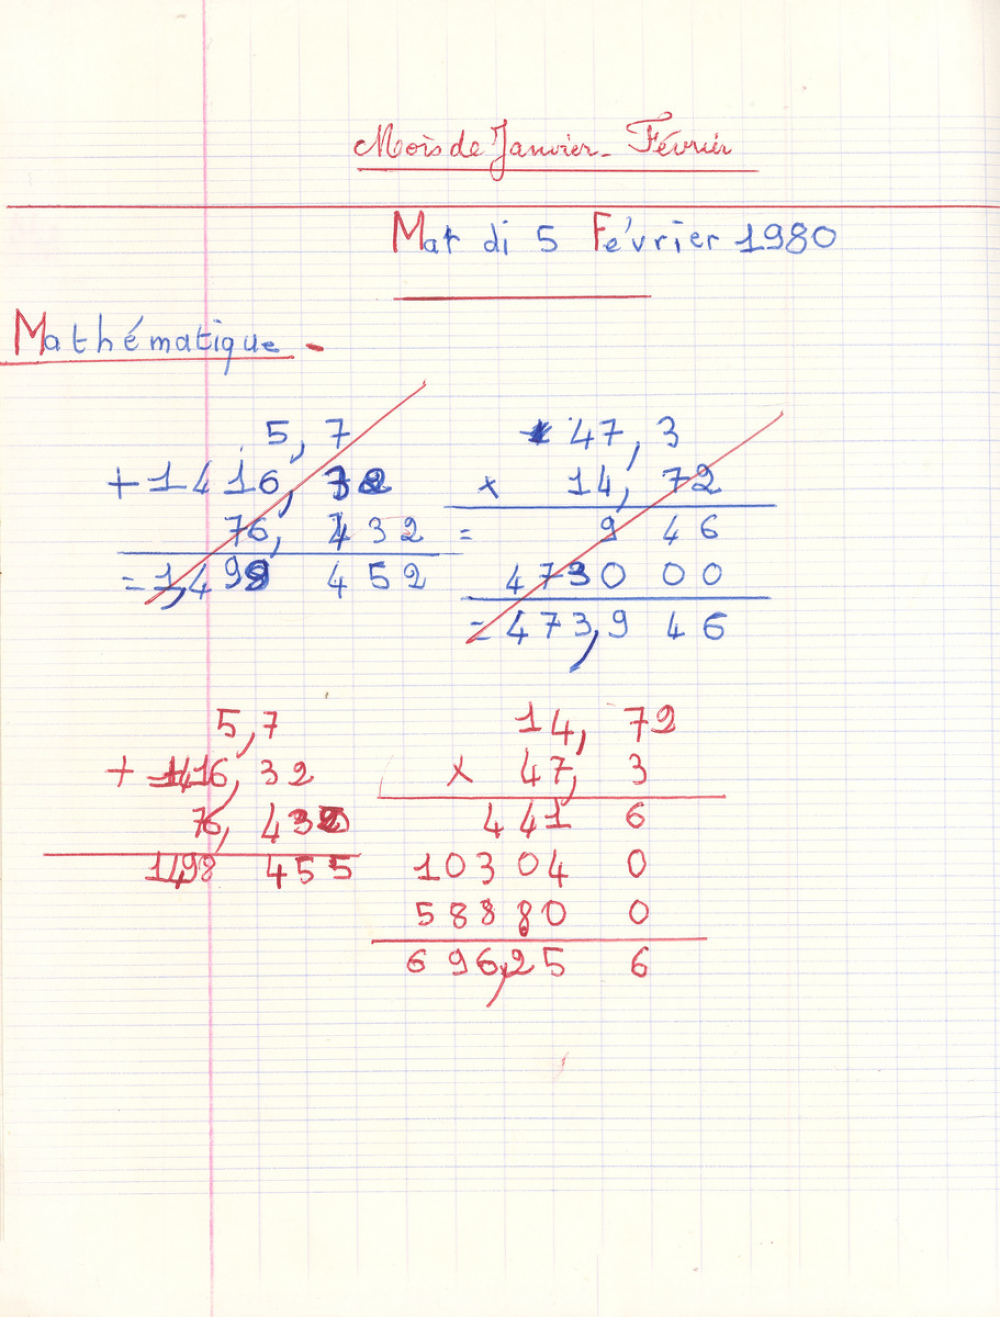 Mois de Janvier - Février
Mardi 5 Février 1980
Mathématique -
5,7
+ 1416, 32
76, 432
= 1,498 452
47,3
x 14,72
= 9 46
4730 00
= 473,9 46
5,7
+ 1416,32
76, 432
1498 455
14,72
x 47,3
441 6
10304 0
58880 0
696,25 6